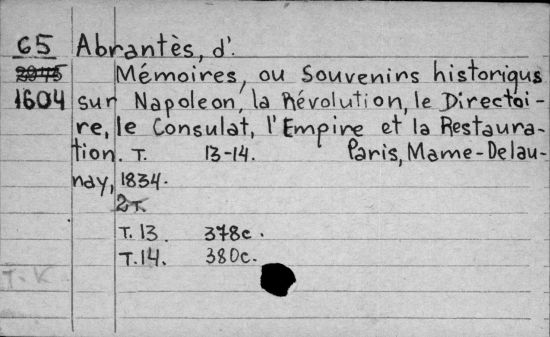 65 Abrantès, d'.
Mémoires, ou Souvenirs historiqus
1604 sur Napoleon, la Révolution, le Directoi-
re, le Consulat, l'Empire et la Restaura-
tion. T. 13-14. Paris, Mame-Delau-
nay, 1834.
2т
T. 13. 378c.
T. 14. 380c.
T. K.